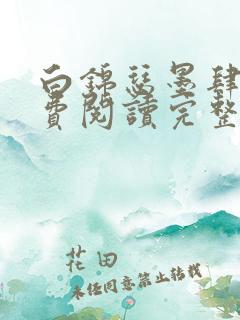 白錦瑟墨肆
費閱讀完整
花田
未經同意禁止轉載